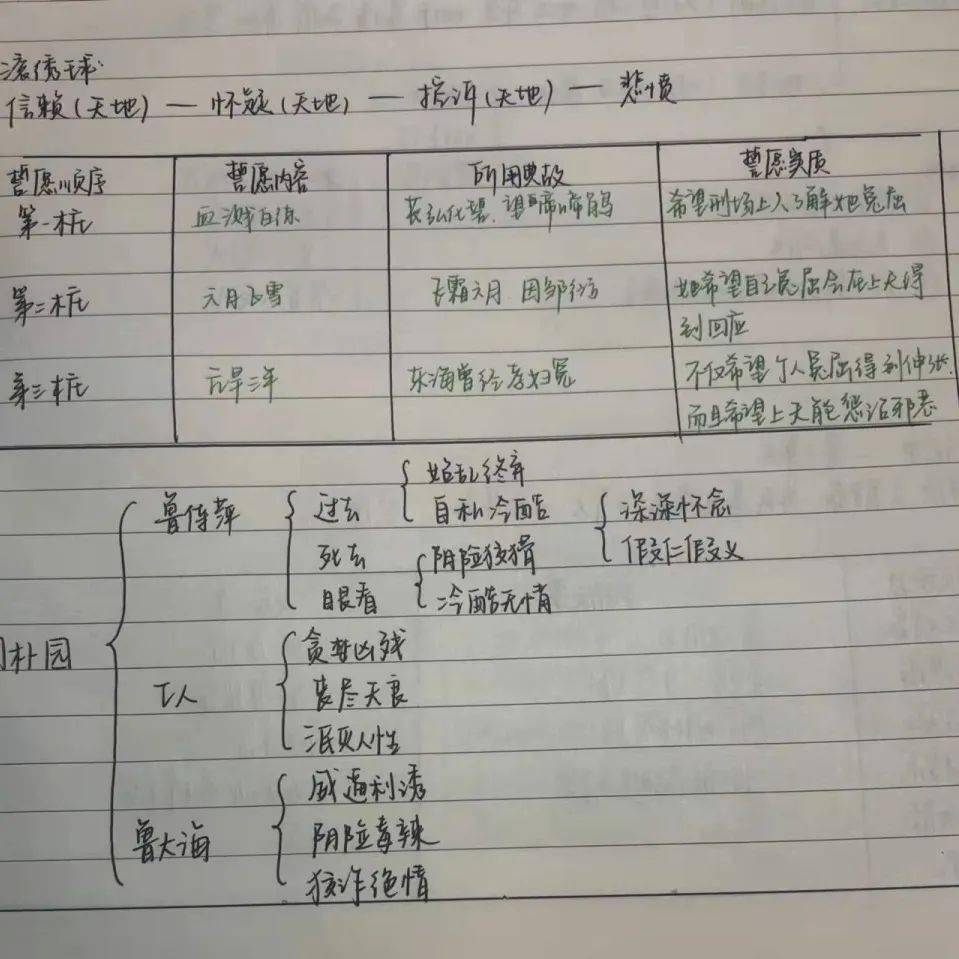 滚绣球
信赖(天地) — 怀疑(天地) — 控诉(天地) — 悲愤
誓愿顺序 誓愿内容 所用典故 誓愿实质
第一桩 血溅白练 苌弘化碧、望帝啼鹃 希望刑场上人了解她冤屈
第二桩 六月飞雪 飞霜六月 因邹衍 她希望自己冤屈会在上天得
到回应
第三桩 亢旱三年 东海曾经孝妇冤 不仅希望个人冤屈得到伸张,
而且希望上天能惩治邪恶
始乱终弃
鲁侍萍 过去 自私冷酷 深深怀念
死去 阴险狡猾 假仁假义
眼看 冷酷无情
朴园 贪婪凶残
工人 丧尽天良
泯灭人性
威逼利诱
鲁大海 阴险毒辣
狡诈绝情